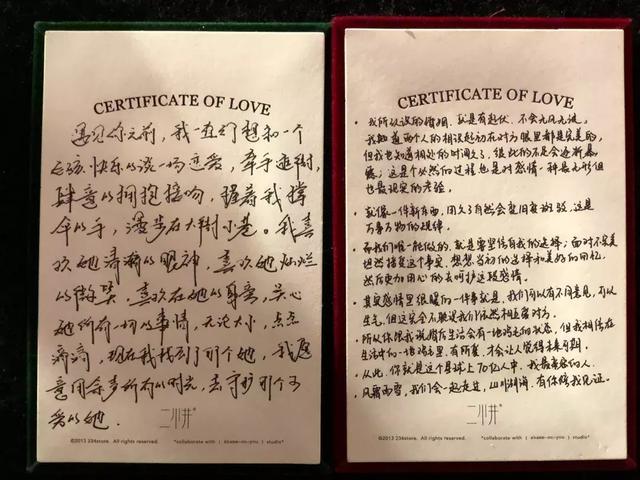 CERTIFICATE OF LOVE
遇见你之前，我一直幻想和一个
女孩快乐的谈一场恋爱，牵手逛街，
肆意的拥抱接吻，握着我撑
伞的手，漫步在大街小巷。我喜
欢她清澈的眼神，喜欢她灿烂
的微笑，喜欢在她的身旁，关心
她所有一切的事情，无论大小，点点
滴滴，现在我找到了那个她，我愿
意用余生所有的时光，去守护那个可
爱的她．
二小井
©2013 234store. All rights reserved. "collaborate with ( akame-no-you ) studio"
CERTIFICATE OF LOVE
我所认识的婚姻，就是有起伏，不会无风无波。
我知道两个人的相识起初在对方眼里都是完美的，
但我也知道相处的时间久了，彼此的不足会逐渐暴
露；这是个必然的过程也是对感情一种最无形但
也最现实的考验。
就像一件新东西，用久了自然会变旧变斑驳，这是
万事万物的规律。
而我们唯一能做的，就是要坚信自我的选择；面对不完美
坦然接受这个事实，想想当初的选择和美好的回忆，
然后更加用心的去呵护这段感情。
其实感情里很暖的一件事就是，我们可以有不同意见，可以
生气，但这完全不耽误我们依然相互爱对方。
所以你跟我说婚后生活会有一地鸡毛的状态，但我相信在
生活中的一地鸡毛里，有所爱，才会让人觉得未来可期。
从此，你就是这个星球上70亿人中，我最亲密的人．
风霜雨雪，我们会一起走过，山川湖海，有你陪我见证。
二小井
©2013 234store. All rights reserved. "collaborate with ( akame-no-you ) studio"